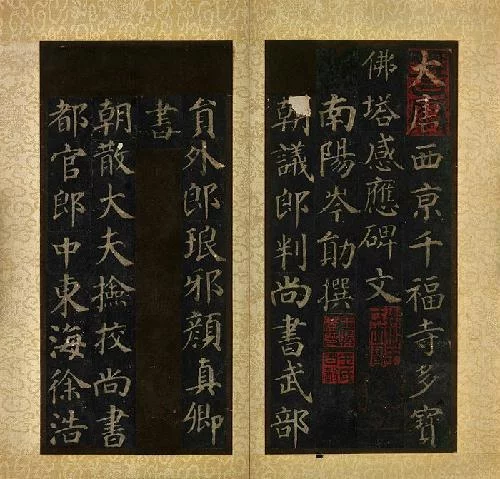 大唐西京千福寺多寶
佛塔感應碑文
南陽岑勛撰
朝議郎判尚書武部
貟外郎琅邪顏真卿
書
朝散大夫撿挍尚書
都官郎中東海徐浩